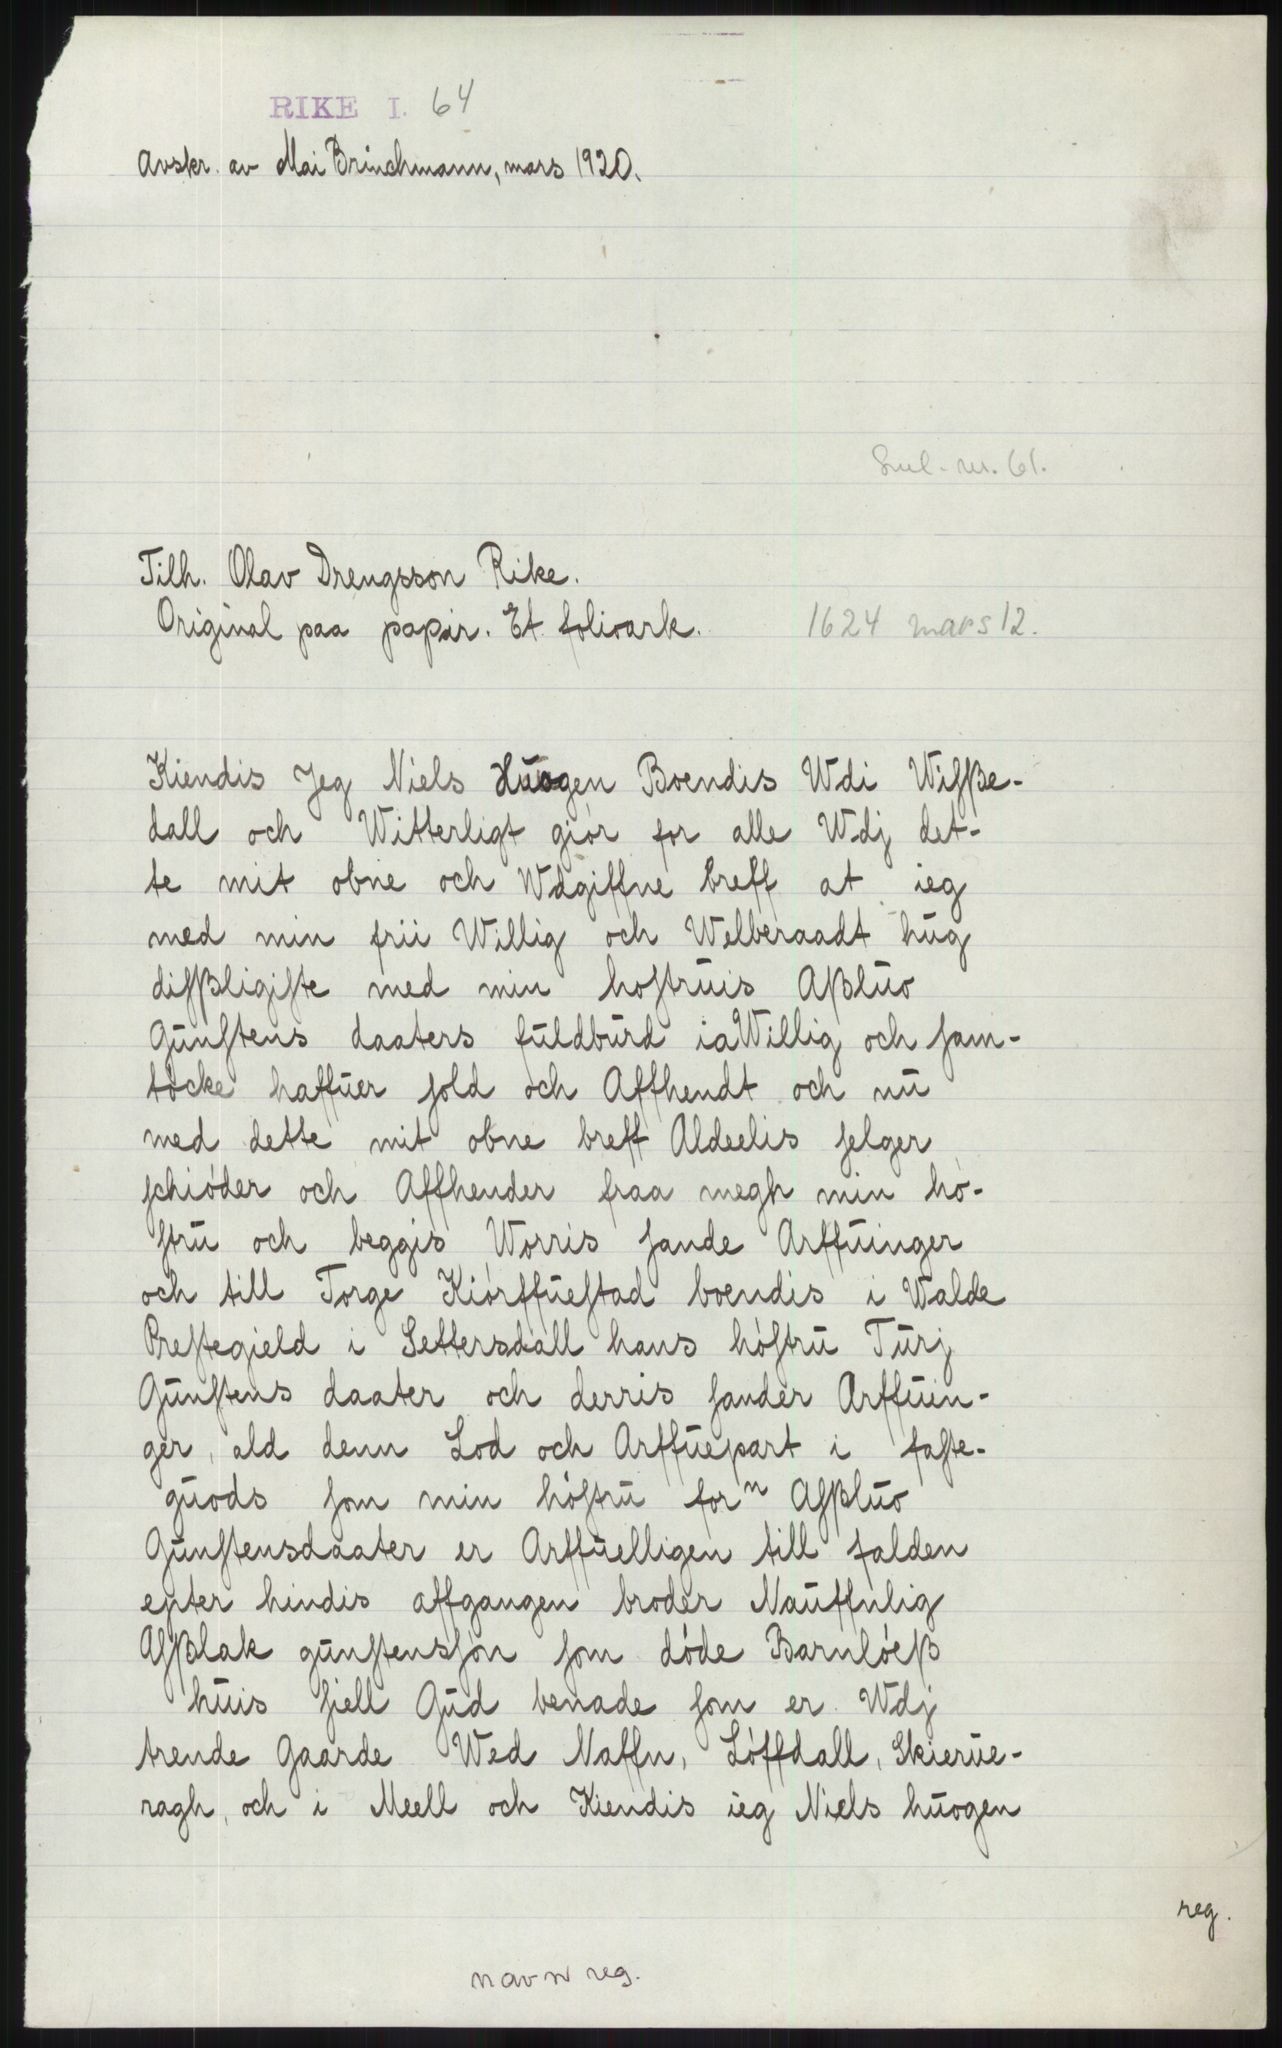 RIKE I. 64
Avskr. av Mai Brinchmann, mars 1920.
nr. 61.
Tilh. Olav Drengsson Rike.
Original paa papir. Et folioark.
1624 mars 12.
Kiendis Jeg Niels Huogen Boendis Wdi Wisße-
dall och Witterligt giór for alle Wdj det-
te mit obne och Wdgiffne breff at ieg
med min frii Willig och Welberaadt hug
disßligiste med min hostruis Aßluo
Gunstens daaters fuldburd ia Willig och sam-
tócke haffuer sold och Affhendt och nu
med dette mit obne breff Aldeelis selger
schióder och Affhender fraa megh min hó-
stru och beggis Worris sande Arffuinger
och till Torge Kiórffuestad boendis i Walde
Prestegield i Settersdall hans hóstru Turj
Gunstens daater och derris sander Arffuin-
ger, ald denn Lod och Arffuepart i faste-
guods som min hóstru forⁿ Asßluo
Gunstensdaater er Arffuelligen till falden
epter hindis affgangen broder Nauffnlig
Asßlak gunstensón som dóde Barnlóeß
huis siell Gud benade som er Wdj
trende Gaarde Wed Naffn, Lóffdall, Skierue-
ragh, och i Meell och Kiendis ieg Niels huogen
reg.
navn reg.